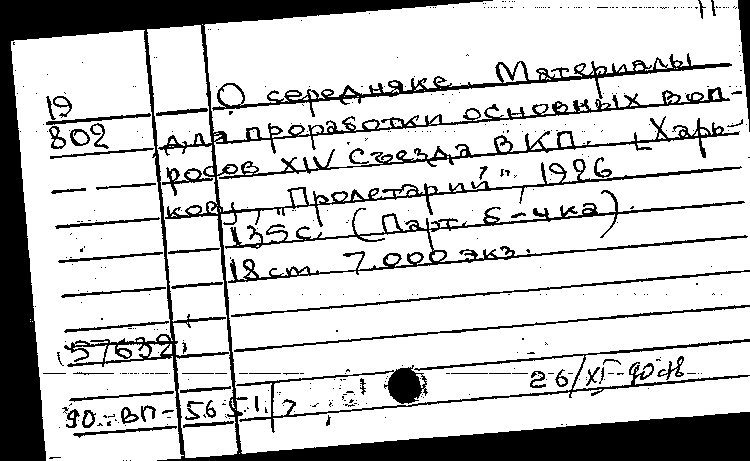 19
802
О середняке. Материалы
для проработки основных воп-
росов XIV съезда ВКП. [Харь-
ков], "Пролетарий", 1926
135 с. (Парт. б-чка).
18 см. 7.000 экз.
57632
90.-ВП-5651/7
26/XI-90